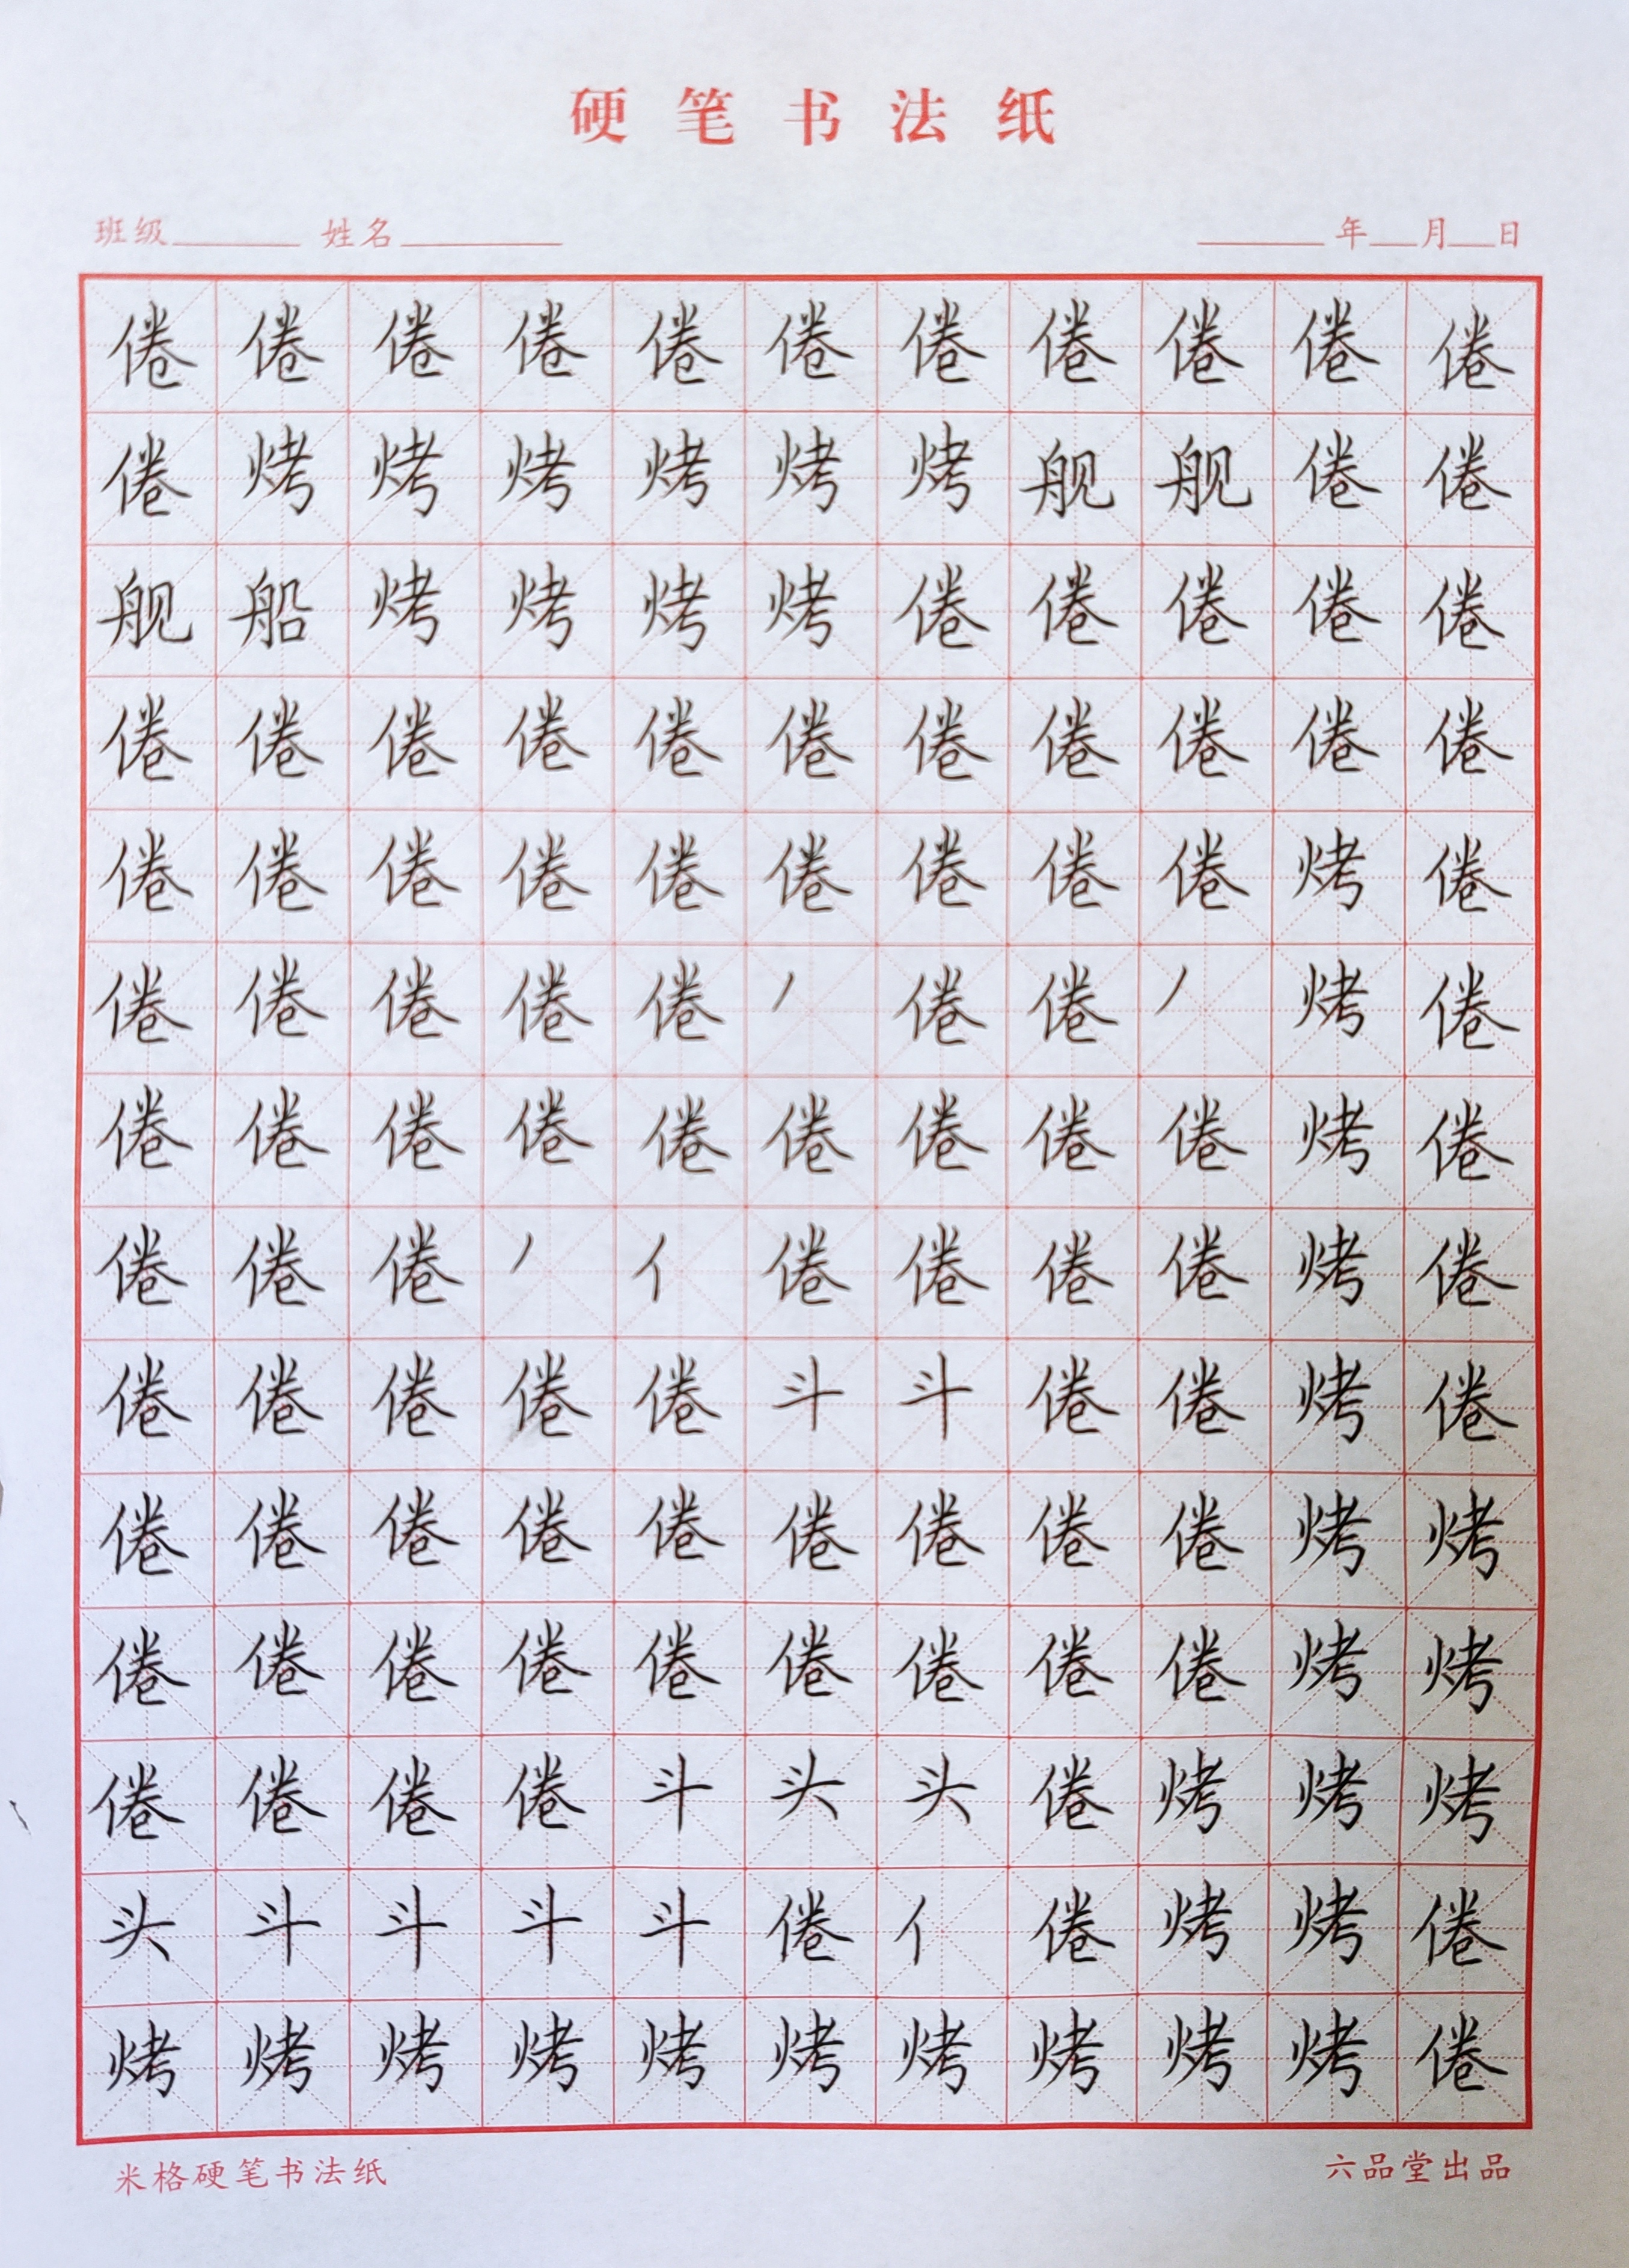 硬笔书法纸
班级 姓名 年 月 日
倦倦倦倦倦倦倦倦倦倦倦
倦烤烤烤烤烤烤舰舰倦倦
舰船烤烤烤烤倦倦倦倦倦
倦倦倦倦倦倦倦倦倦倦倦
倦倦倦倦倦倦倦倦倦烤倦
倦倦倦倦倦丿倦倦丿烤倦
倦倦倦倦倦倦倦倦倦烤倦
倦倦倦丿亻倦倦倦倦烤倦
倦倦倦倦倦斗斗倦倦烤倦
倦倦倦倦倦倦倦倦倦烤烤
倦倦倦倦倦倦倦倦倦烤烤
倦倦倦倦斗头头倦烤烤烤
头斗斗斗斗倦亻倦烤烤倦
烤烤烤烤烤烤烤烤烤烤倦
米格硬笔书法纸 六品堂出品